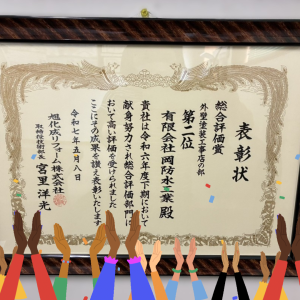 表彰状
総合評価賞
外壁塗装工事店の部
第二位
有限会社 岡防水工業 殿
貴社は令和六年度下期において
献身努力され総合評価部門に
おいて高い評価を受けられました
ここにその成果を讃え表彰いたします
令和七年五月八日
旭化成リフォーム株式会社
取締役技術部長 宮里洋光